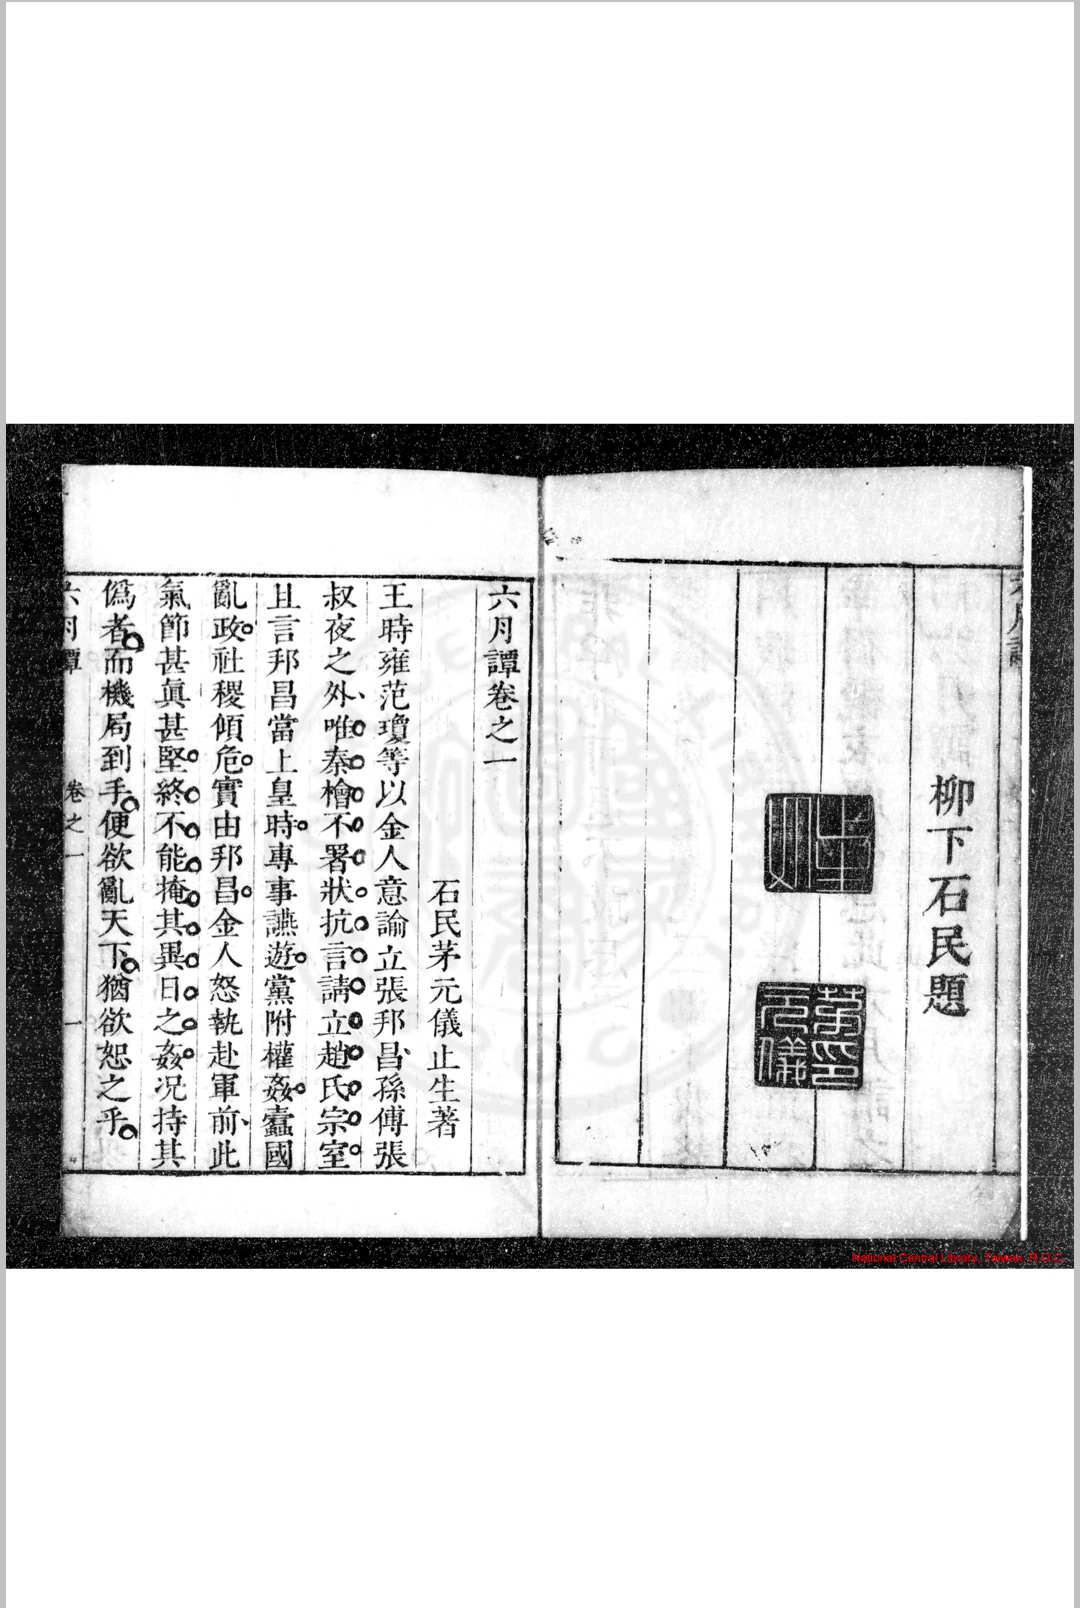 柳下石民題
止生
茅印元儀
六月譚卷之一
石民茅元儀止生著
王時雍范瓊等以金人意諭立張邦昌、孫傅張
叔夜之外、唯秦檜不署狀抗言請立趙氏宗室
且言邦昌當上皇時專事讌遊黨附權姦蠹國
亂政社稷傾危實由邦昌金人怒執赴軍前、此
氣節甚真甚堅終不能掩其異日之姦况持其
僞者而機局到手便欲亂天下猶欲恕之乎
六月譚 卷之一 一
National Central Library, Taiwan, R.O.C